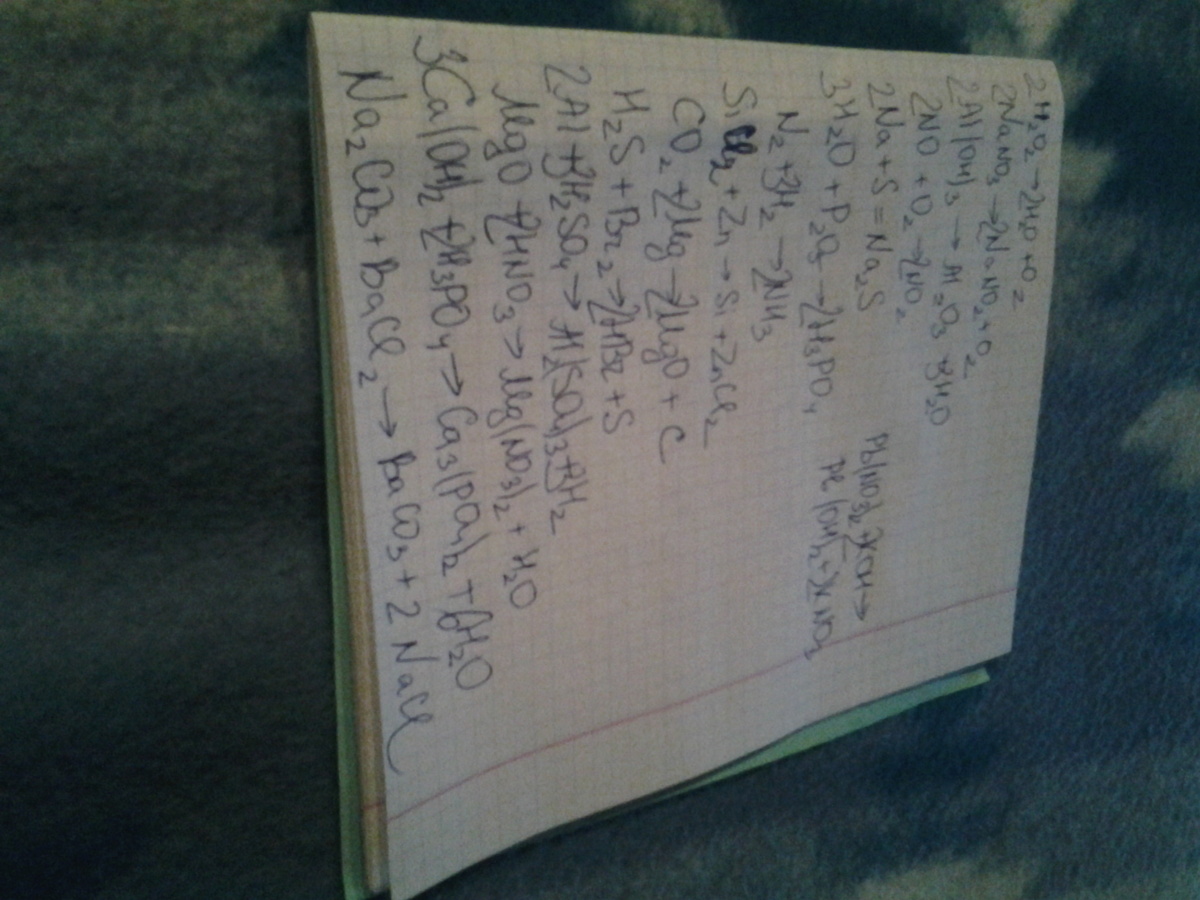 2H₂O₂ → 2H₂O + O₂
2NaNO₃ → 2NaNO₂ + O₂
2Al(OH)₃ → Al₂O₃ + 3H₂O
2NO + O₂ → 2NO₂
2Na + S = Na₂S
3H₂O + P₂O₅ → 2H₃PO₄
N₂ + 3H₂ → 2NH₃
SiCl₂ + Zn → Si + ZnCl₂
CO₂ + 2Mg → 2MgO + C
H₂S + Br₂ → 2HBr + S
2Al + 3H₂SO₄ → Al₂(SO₄)₃ + 3H₂
MgO + 2HNO₃ → Mg(NO₃)₂ + H₂O
3Ca(OH)₂ + 2H₃PO₄ → Ca₃(PO₄)₂ + 6H₂O
Na₂CO₃ + BaCl₂ → BaCO₃ + 2NaCl
Pb(NO₃)₂ + 2KOH →
(OH)₂ + 2KNO₃